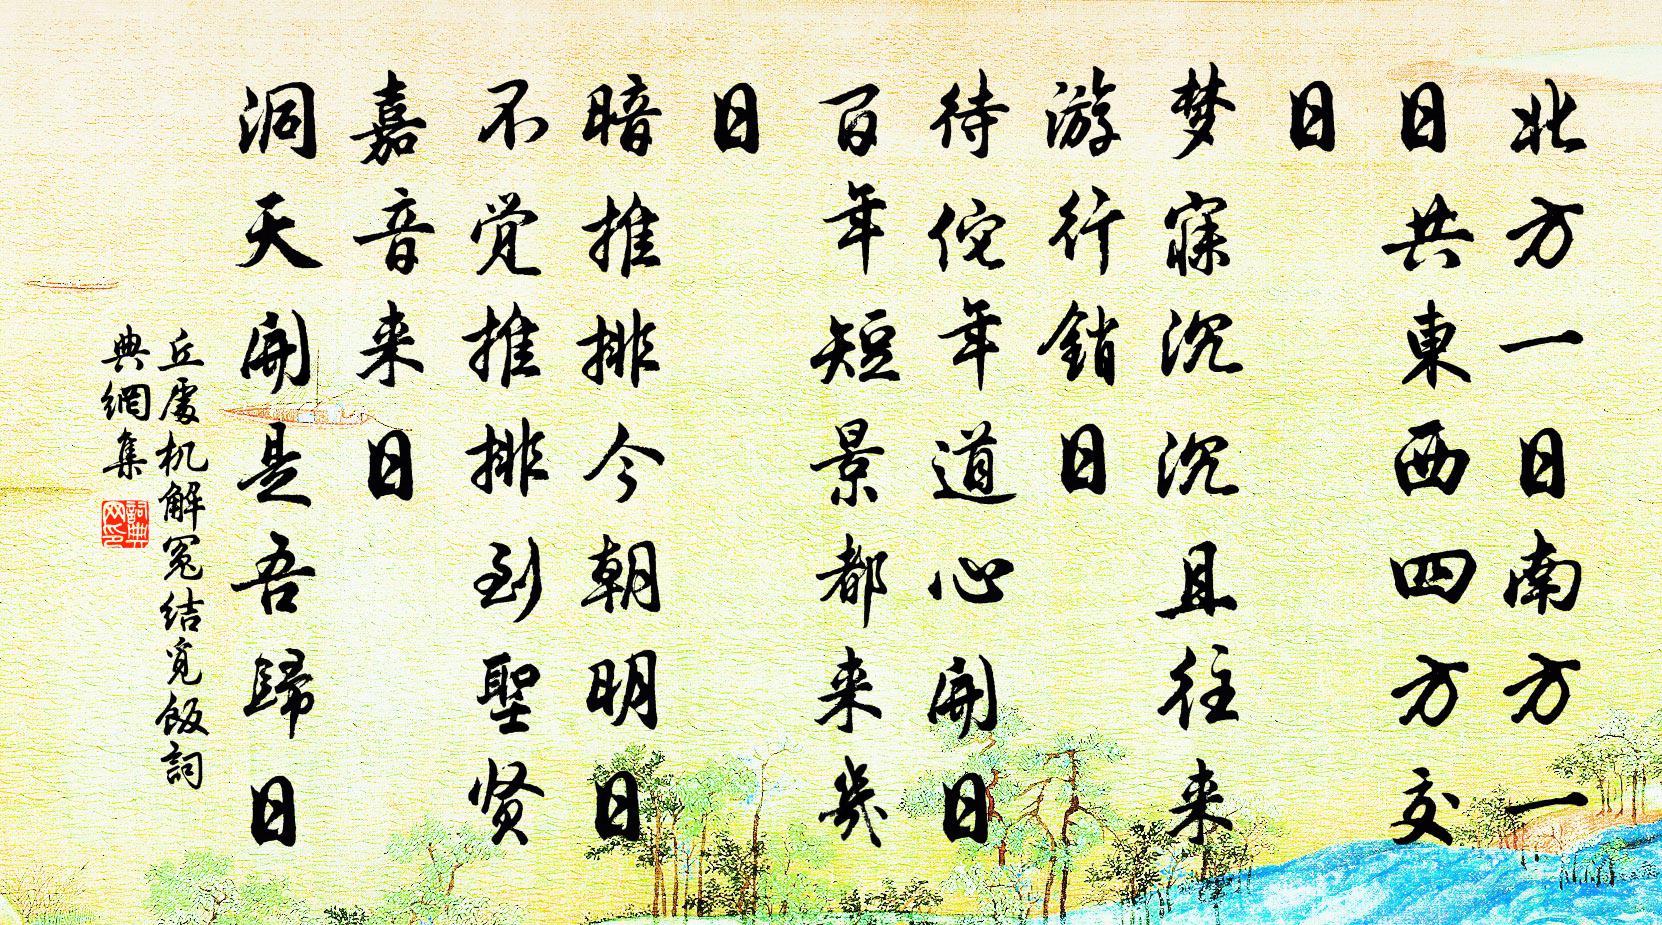 北方一日南方一
日共東西四方交
日
梦寐沉沉且往来
游行銷日
待佗年道心開日
百年短景都来幾
日
暗推排今朝明日
不觉推排到聖贤
嘉音来日
洞天開是吾歸日
丘處机解冤結觅飯詞
典網集
詞典
网印